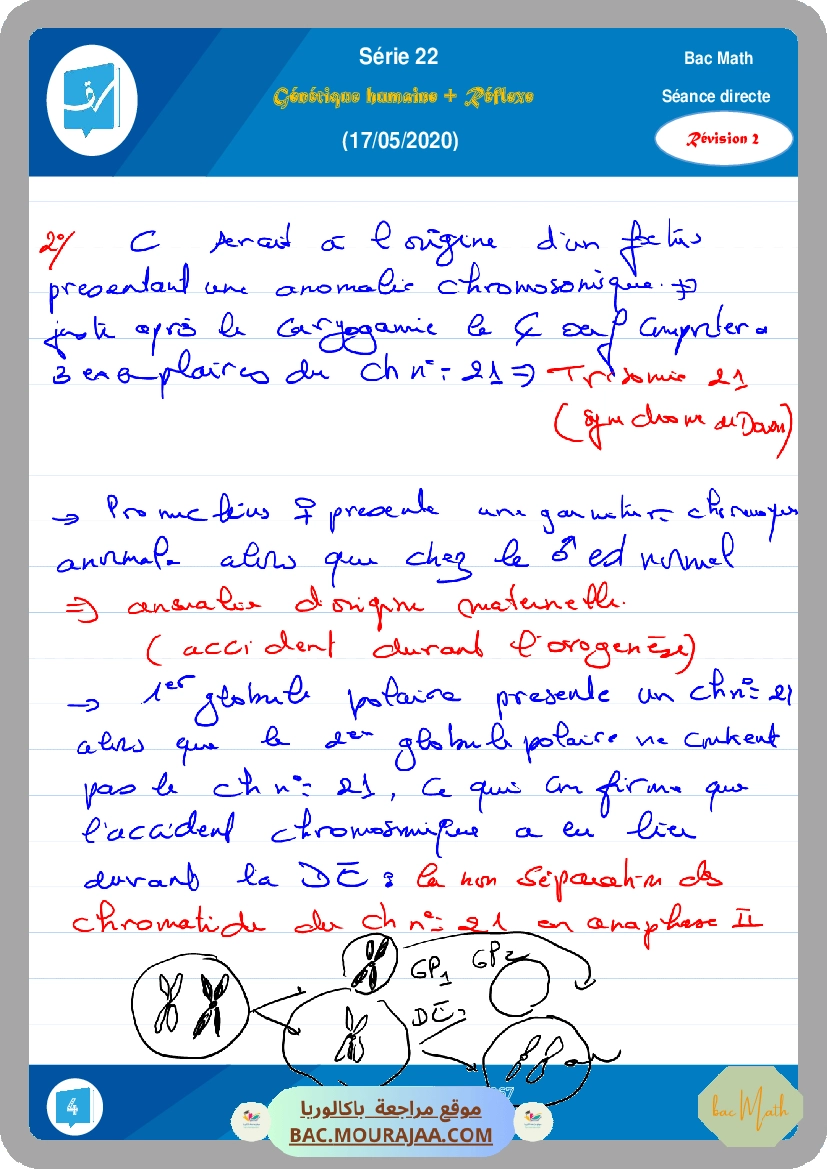 Série 22
Génétique humaine + Réflexe
(17/05/2020)
Bac Math
Séance directe
Révision 2
2°/ C serait à l'origine d'un fœtus
présentant une anomalie chromosomique.
juste après la caryogamie la œuf comptera
3 exemplaires du ch n°= 21 ⇒ Trisomie 21
(syndrome de Down)
→ Pronucléus ♀ présente une garniture
anormale alors que chez le ♂ est normal
⇒ anomalie d'origine maternelle.
(accident durant l'ovogenèse)
→ 1er globule polaire présente un ch n°= 21
alors que le 2em globule polaire ne contient
pas le ch n°= 21, ce qui confirme que
l'accident chromosomique a eu lieu
durant la DE : la non séparation des
chromatides du ch n°= 21 en anaphase II
GP1 GP2
DE
4
موقع مراجعة باكالوريا
BAC.MOURAJAA.COM
bac Math